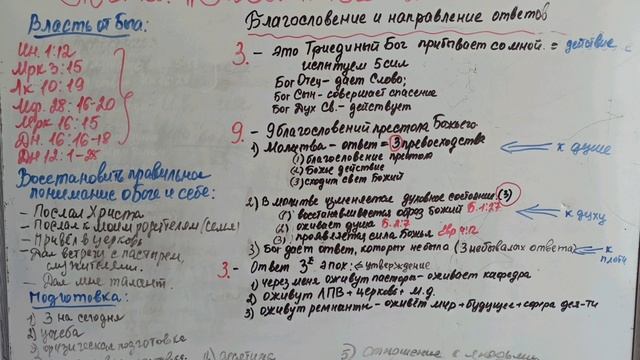 Власть от Бога:
Ин. 1:12
Мрк 3:15
Лк 10:19
Мф. 28:16-20
Мрк 16:15
Дн. 16:16-18
Дн 12:1-
Восстановить правильное
понимание о Боге и себе:
- Послал Христа
- Послал к моим родителям (семья)
- Привёл в церковь
- Дал встречу с пастырем,
служителями.
- Дал мне талант.
Подготовка:
1) 3 на сегодня
2) учёба
3) физическая подготовка
Благословение и направление ответов
3. - это Триединый Бог прибывает со мной. = действие
испытуем 5 сил
Бог Отец - даёт Слово;
Бог Сын - совершает спасение
Бог Дух Св. - действует
9. - 9 благословений престола Божьего
1) Молитва - ответ = 3 превосходства ← к душе
(1) благословение престола
(2) Божье действие
(3) сходит свет Божий
2) В молитве изменяется духовное состояние. (3)
(1) восстанавливается образ Божий Б. 1:27
(2) оживает душа Б. 2:7 ← к духу
(3) проявляется сила Божья Евр 4:12
3) Бог дает ответ, которых не было (3 небывалах ответа) ← к плоти
3. - Ответ 3х эпох: ← утверждение
1) через меня оживут пастора - оживает кафедра
2) оживут ЛПВ + церковь + м.д.
3) оживут ремнанты - оживёт мир + будущее + сфера дея-ти
5) отношение к людьми